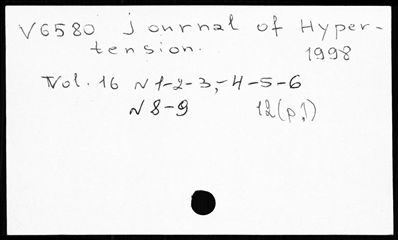 V6580 Journal of Hyper-
tension. 1998
Vol. 16 N 1-2-3,-4-5-6
N 8-9 12(p.1)